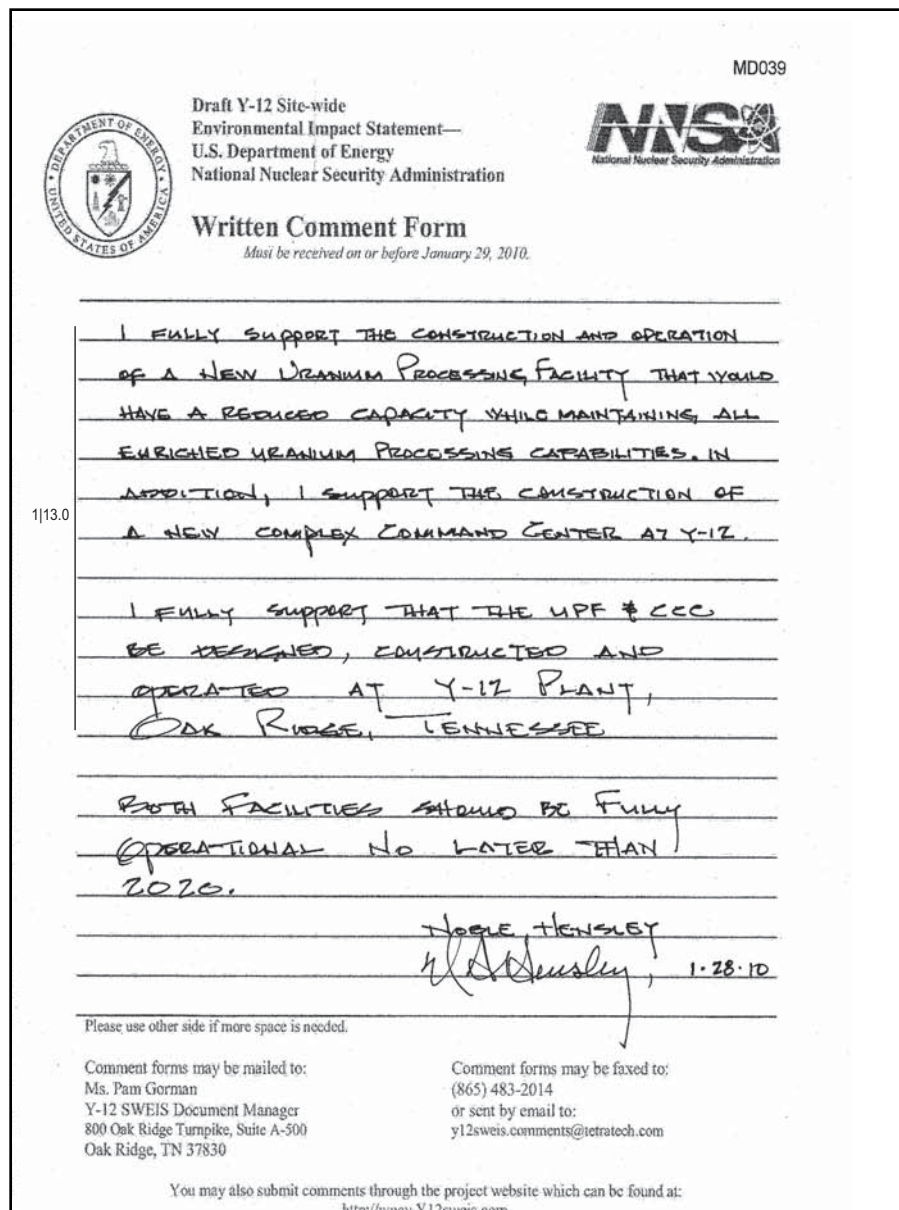 MD039
Draft Y-12 Site-wide
Environmental Impact Statement—
U.S. Department of Energy
National Nuclear Security Administration
DEPARTMENT OF ENERGY
UNITED STATES OF AMERICA
NNSA
National Nuclear Security Administration
Written Comment Form
Must be received on or before January 29, 2010.
I FULLY SUPPORT THE CONSTRUCTION AND OPERATION
OF A NEW URANIUM PROCESSING FACILITY THAT WOULD
HAVE A REDUCED CAPACITY WHILE MAINTAINING ALL
ENRICHED URANIUM PROCESSING CAPABILITIES. IN
ADDITION, I SUPPORT THE CONSTRUCTION OF
1|13.0
A NEW COMPLEX COMMAND CENTER AT Y-12.
I FULLY SUPPORT THAT THE UPF & CCC
BE DESIGNED, CONSTRUCTED AND
OPERATED AT Y-12 PLANT,
OAK RIDGE, TENNESSEE
BOTH FACILITIES SHOULD BE FULLY
OPERATIONAL NO LATER THAN
2020.
NOBLE HENSLEY
N A Hensley, 1·28·10
Please use other side if more space is needed.
Comment forms may be mailed to:
Ms. Pam Gorman
Y-12 SWEIS Document Manager
800 Oak Ridge Turnpike, Suite A-500
Oak Ridge, TN 37830
Comment forms may be faxed to:
(865) 483-2014
or sent by email to:
y12sweis.comments@tetratech.com
You may also submit comments through the project website which can be found at:
http://www.Y12sweis.com